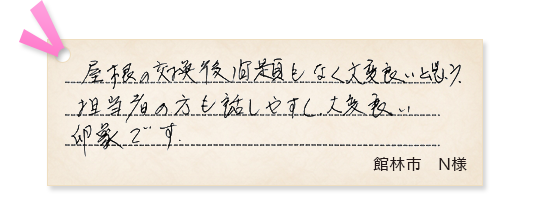 屋根の交換後問題もなく大変良いと思う.
担当者の方も話しやすく、大変良い
印象です.
館林市　N様